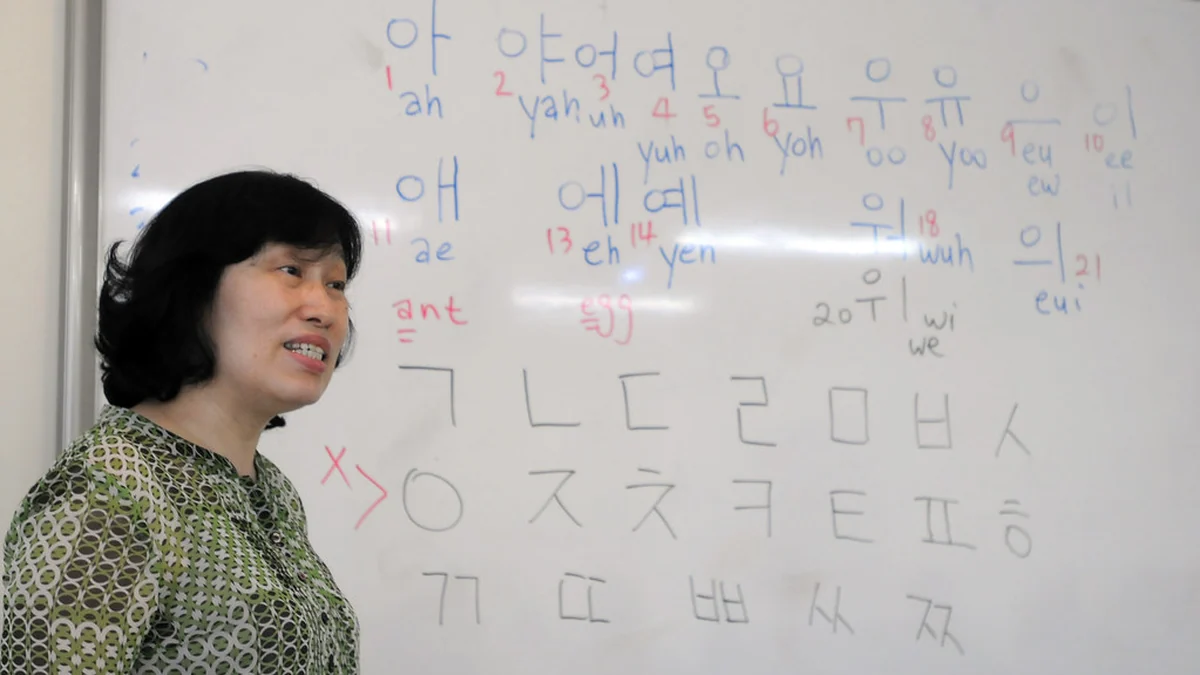 아 야 어 여 오 요 우 유 으 이
1 2 3 4 5 6 7 8 9 10
ah yah uh yuh oh yoh oo yoo eu ee
ew il
애 에 예 워 의
11 13 14 18 21
ae eh yen wuh eui
ant egg
20 위 wi
we
ㄱ ㄴ ㄷ ㄹ ㅁ ㅂ ㅅ
X > ㅇ ㅈ ㅊ ㅋ ㅌ ㅍ ㅎ
ㄲ ㄸ ㅃ ㅆ ㅉ